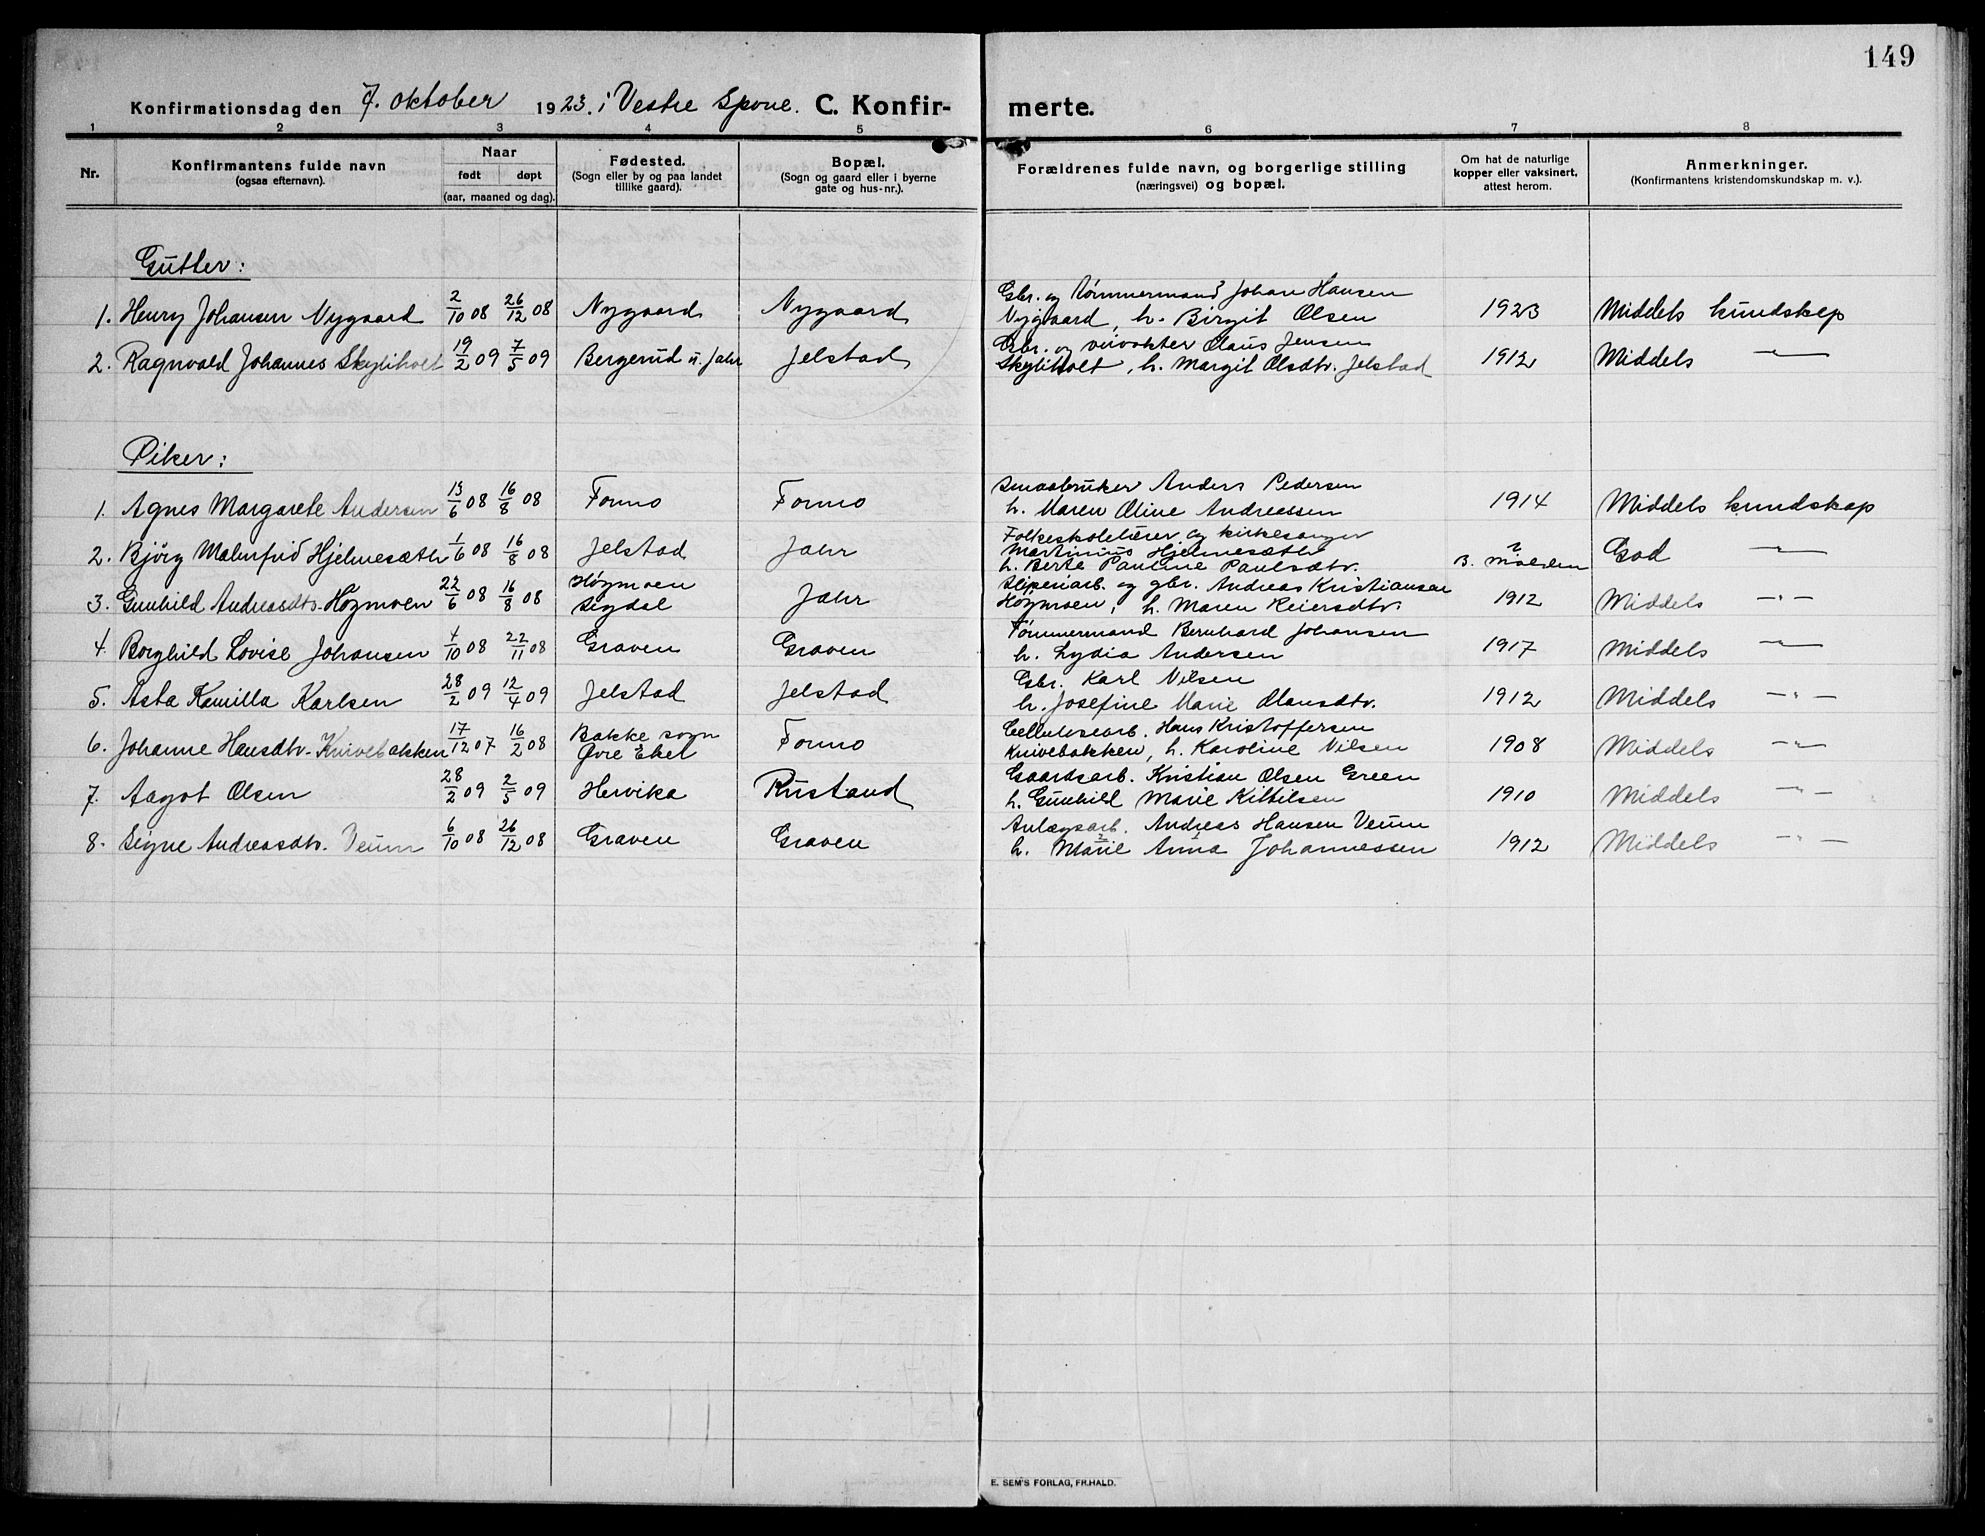 149
Konfirmationsdag den 7. oktober 1923. i Vestre Spone. C. Konfir- merte.
1 2 3 4 5 6 7 8
Nr.
Konfirmantens fulde navn
(ogsaa efternavn).
Naar
født døpt
(aar, maaned og dag).
Fødested.
(Sogn eller by og paa landet
tillike gaard).
Bopæl.
(Sogn og gaard eller i byerne
gate og hus-nr.).
Forældrenes fulde navn, og borgerlige stilling
(næringsvei) og bopæl.
Om hat de naturlige
kopper eller vaksinert,
attest herom.
Anmerkninger.
(Konfirmantens kristendomskundskap m. v.).
Gutter:
1. Henry Johansen Nygaard 2/10 08 26/12 08 Nygaard Nygaard Gbr. og tømmermand Johan Hansen
Nygaard, h. Birgit Olsen 1923 Middels kundskap
2. Ragnvald Johannes Skyliholt 19/2 09 7/5 09 Bergerud u. Jahr Jelstad Gbr. og veivokter Olaus Jensen
Skyliholt, h. Margit Olsdtr. Jelstad 1912 Middels —"—
Piker:
1. Agnes Margarete Andersen 15/6 08 16/8 08 Formo Formo Smaabruker Anders Pedersen
h. Maren Oline Andreassen 1914 Middels kundskap
2. Bjørg Malmfrid Hjelmesæth 1/6 08 16/8 08 Jelstad Jahr Folkeskolelærer og kirkesanger
Martinius Hjelmesæth
h. Berte Pauline Paulsdtr. God —"—
3. Gunhild Andreasdtr. Høgmoen 22/6 08 16/8 08 Høgmoen
Sigdal Jahr Sliperiarb. og gbr. Andreas Kristiansen
Høgmoen, h. Maren Reiersdtr. 1912 Middels —"—
4. Borghild Lovise Johansen 1/10 08 22/11 08 Graven Graven Tømmermand Bernhard Johansen
h. Lydia Andersen 1917 Middels —"—
5. Asta Kamilla Karlsen 28/2 09 12/4 09 Jelstad Jelstad Gbr. Karl Nilsen
h. Josefine Marie Olausdtr. 1912 Middels —"—
6. Johanne Hansdtr. Knivebakken 17/12 07 16/2 08 Bakke sogn
Øvre Ekel Formo Cellulosearb. Hans Kristoffersen
Knivebakken, h. Karoline Nilsen 1908 Middels —"—
7. Aagot Olsen 28/2 09 2/5 09 Hervika Rustand Gaardsarb. Kristian Olsen Green
h. Gunhild Marie Kittilsen 1910 Middels —"—
8. Signe Andreasdtr. Veum 6/10 08 26/12 08 Graven Graven Anlægsarb. Andreas Hansen Veum
h. Marie Anna Johannessen 1912 Middels —"—
E. SEM'S FORLAG, FR.HALD.